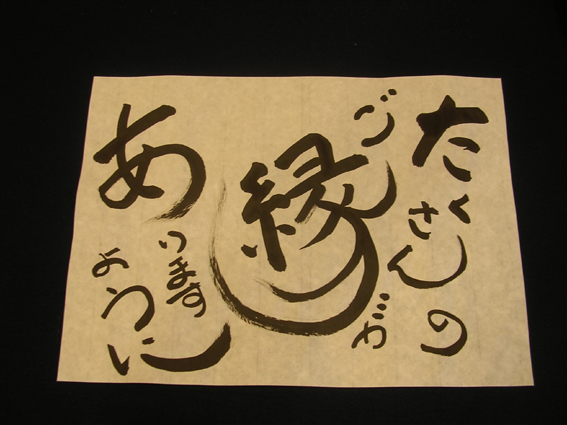 たくさんの
ご縁が
あります
ように